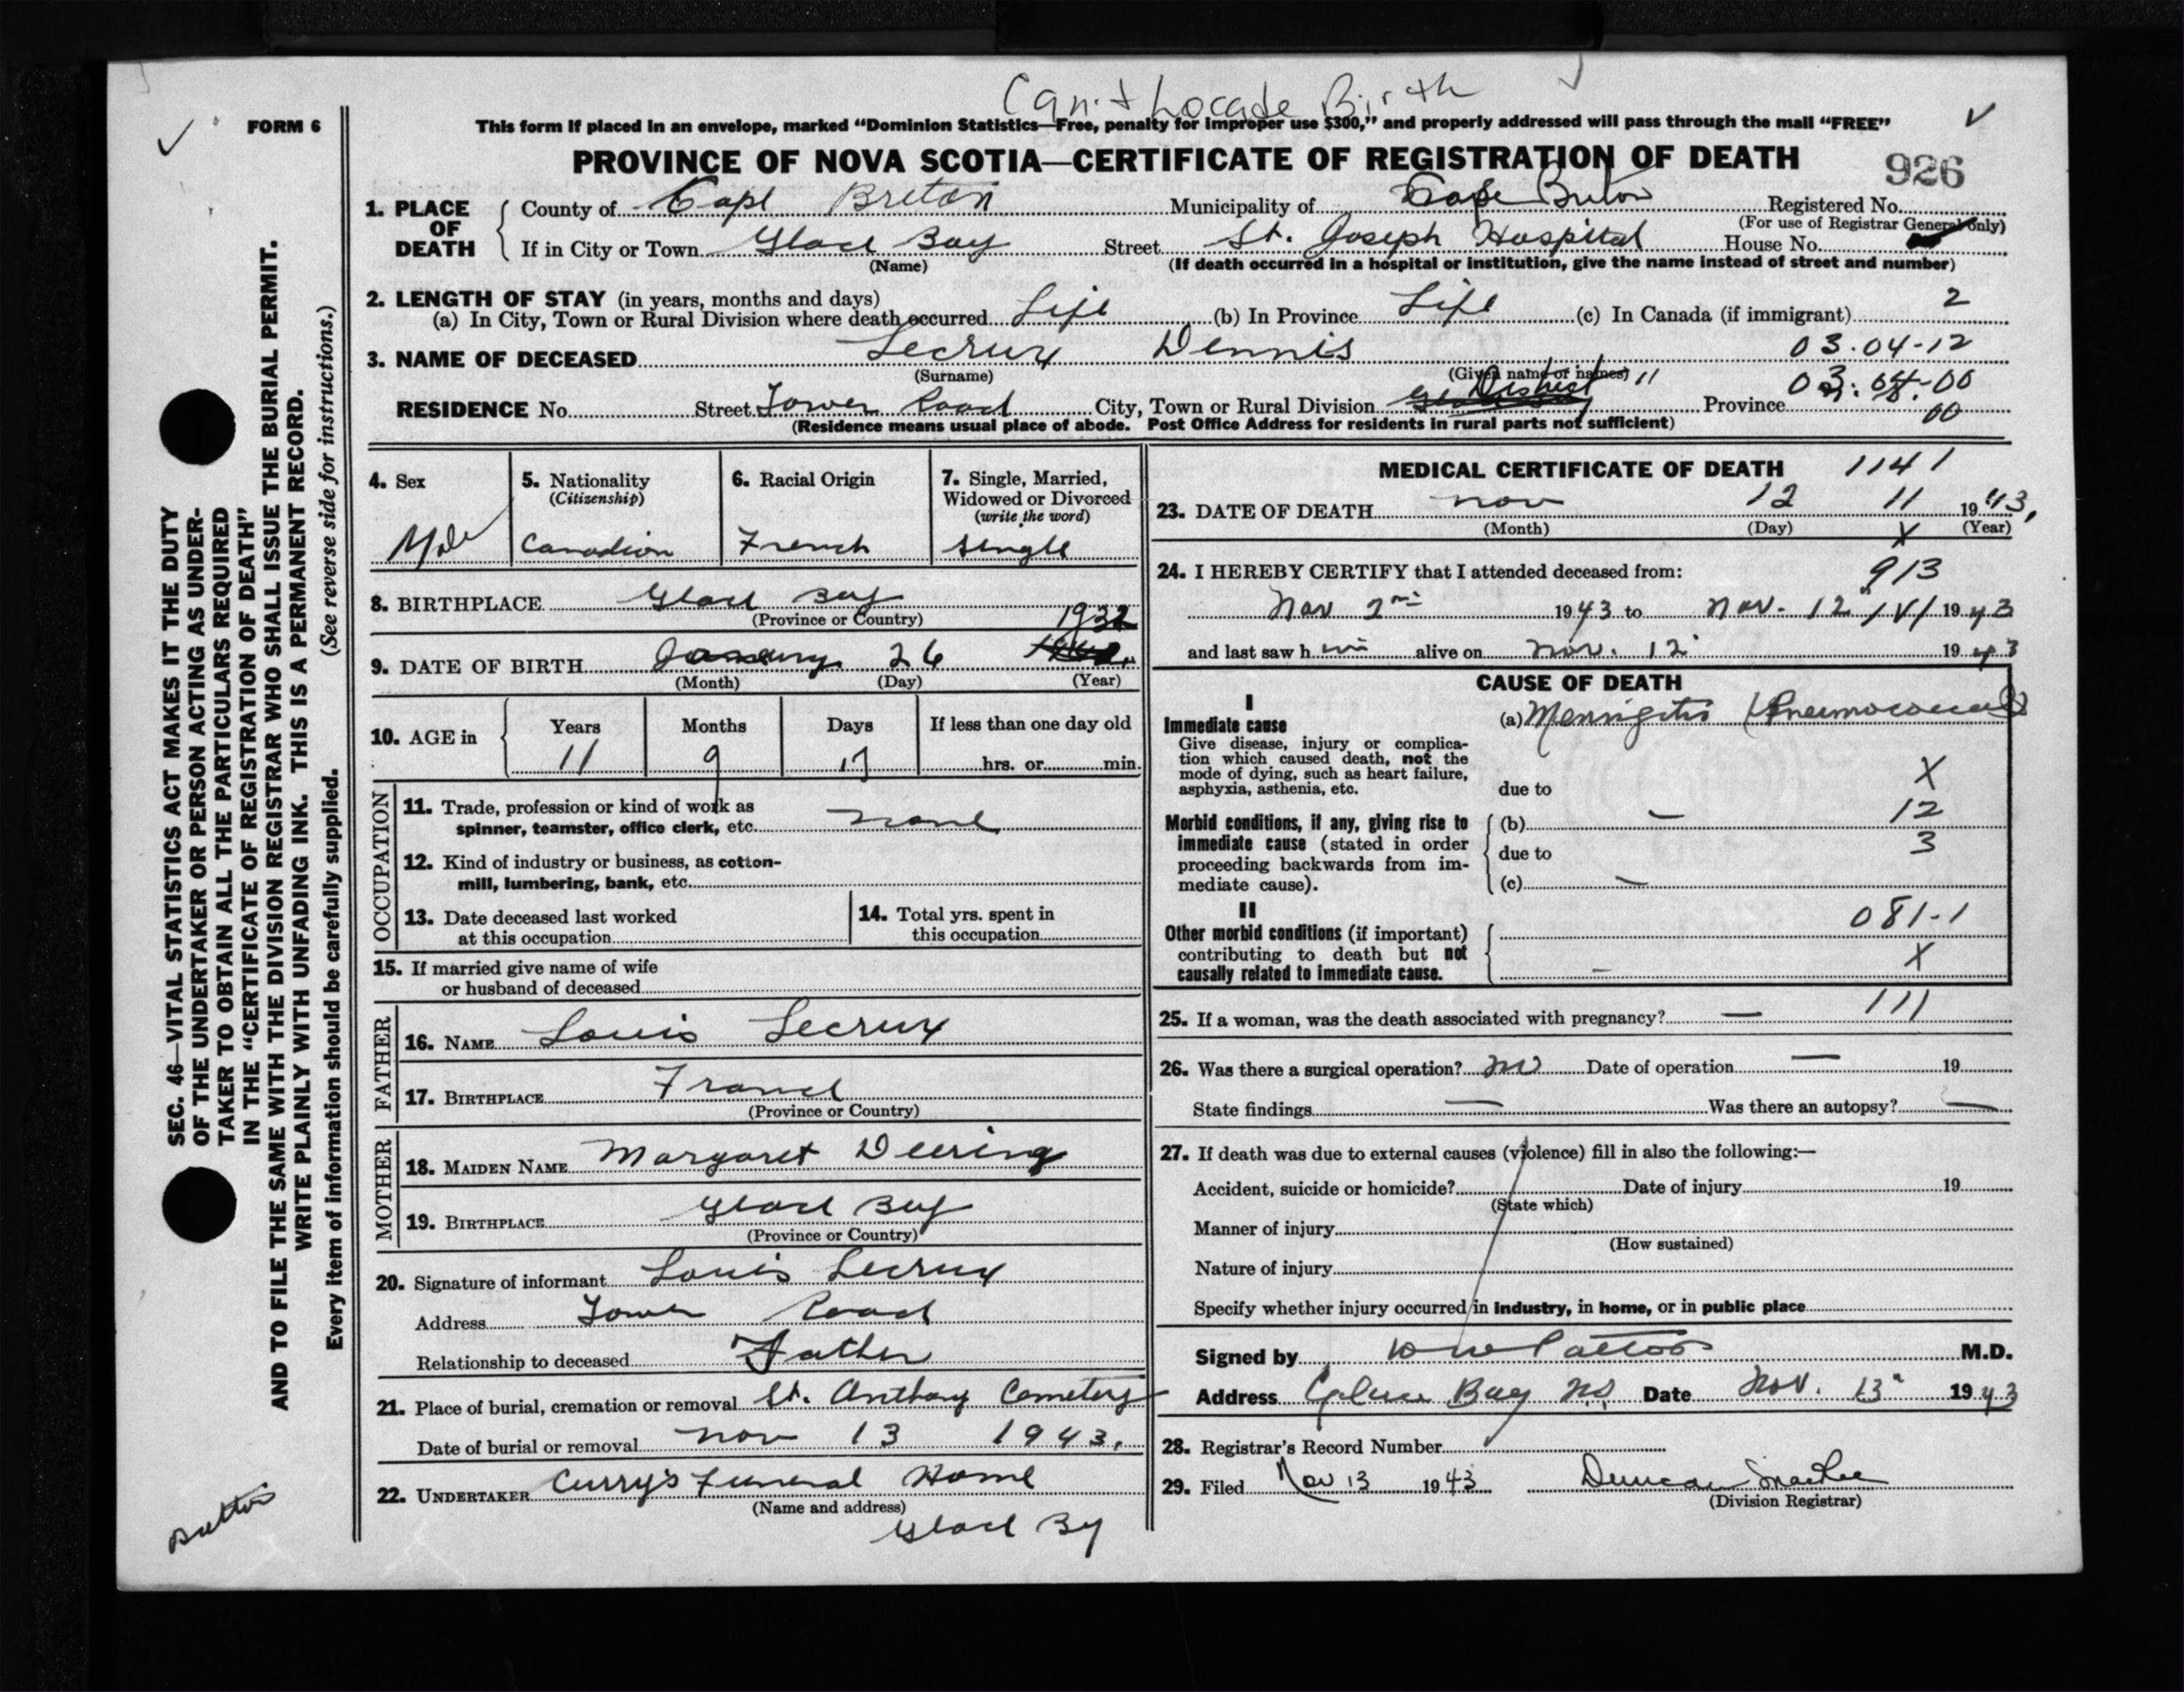 Can't Locate Birth
FORM 6
This form if placed in an envelope, marked "Dominion Statistics—Free, penalty for improper use $300," and properly addressed will pass through the mail "FREE"
PROVINCE OF NOVA SCOTIA—CERTIFICATE OF REGISTRATION OF DEATH
926
1. PLACE OF DEATH
County of Cape Breton Municipality of Cape Breton Registered No.
(For use of Registrar General only)
If in City or Town Glace Bay Street St. Joseph Hospital House No.
(Name) (If death occurred in a hospital or institution, give the name instead of street and number)
2. LENGTH OF STAY (in years, months and days)
(a) In City, Town or Rural Division where death occurred Life (b) In Province Life (c) In Canada (if immigrant) 2
3. NAME OF DECEASED Lecrux Dennis 03.04-12
(Surname) (Given name or names) 11
RESIDENCE No. Street Tower Road City, Town or Rural Division District Province 00
(Residence means usual place of abode. Post Office Address for residents in rural parts not sufficient)
4. Sex
Male
5. Nationality
(Citizenship)
Canadian
6. Racial Origin
French
7. Single, Married,
Widowed or Divorced
(write the word)
Single
8. BIRTHPLACE Glace Bay
(Province or Country)
1932
9. DATE OF BIRTH January 26
(Month) (Day) (Year)
10. AGE in
Years Months Days If less than one day old
11 9 17 hrs. or min.
OCCUPATION
11. Trade, profession or kind of work as
spinner, teamster, office clerk, etc. none
12. Kind of industry or business, as cotton-
mill, lumbering, bank, etc.
13. Date deceased last worked
at this occupation
14. Total yrs. spent in
this occupation
15. If married give name of wife
or husband of deceased
FATHER
16. NAME Louis Lecrux
17. BIRTHPLACE France
(Province or Country)
MOTHER
18. MAIDEN NAME Margaret Deering
19. BIRTHPLACE Glace Bay
(Province or Country)
20. Signature of informant Louis Lecrux
Address Tower Road
Relationship to deceased Father
21. Place of burial, cremation or removal St. Anthony Cemetery
Date of burial or removal Nov 13 1943.
22. UNDERTAKER Curry's Funeral Home
(Name and address)
Glace Bay
MEDICAL CERTIFICATE OF DEATH 1141
23. DATE OF DEATH Nov 12 11 1943,
(Month) (Day) (Year)
X
24. I HEREBY CERTIFY that I attended deceased from:
913
Nov 2nd 1943 to Nov. 12 1943
and last saw him alive on Nov. 12 1943
CAUSE OF DEATH
I
Immediate cause
Give disease, injury or complica-
tion which caused death, not the
mode of dying, such as heart failure,
asphyxia, asthenia, etc.
(a) Meningitis (Pneumococcal)
due to
X
Morbid conditions, if any, giving rise to
immediate cause (stated in order
proceeding backwards from im-
mediate cause).
(b) — 12
due to 3
(c) —
II
Other morbid conditions (if important)
contributing to death but not
causally related to immediate cause.
081-1
— X
25. If a woman, was the death associated with pregnancy? — 111
26. Was there a surgical operation? no Date of operation — 19
State findings — Was there an autopsy? —
27. If death was due to external causes (violence) fill in also the following:—
Accident, suicide or homicide? Date of injury 19
(State which)
Manner of injury
(How sustained)
Nature of injury
Specify whether injury occurred in industry, in home, or in public place
Signed by M.D.
Address Glace Bay N.S. Date Nov. 13" 1943
28. Registrar's Record Number
29. Filed Nov 13 1943 Duncan
(Division Registrar)
SEC. 46—VITAL STATISTICS ACT MAKES IT THE DUTY
OF THE UNDERTAKER OR PERSON ACTING AS UNDER-
TAKER TO OBTAIN ALL THE PARTICULARS REQUIRED
IN THE "CERTIFICATE OF REGISTRATION OF DEATH"
AND TO FILE THE SAME WITH THE DIVISION REGISTRAR WHO SHALL ISSUE THE BURIAL PERMIT.
WRITE PLAINLY WITH UNFADING INK. THIS IS A PERMANENT RECORD.
Every item of information should be carefully supplied. (See reverse side for instructions.)